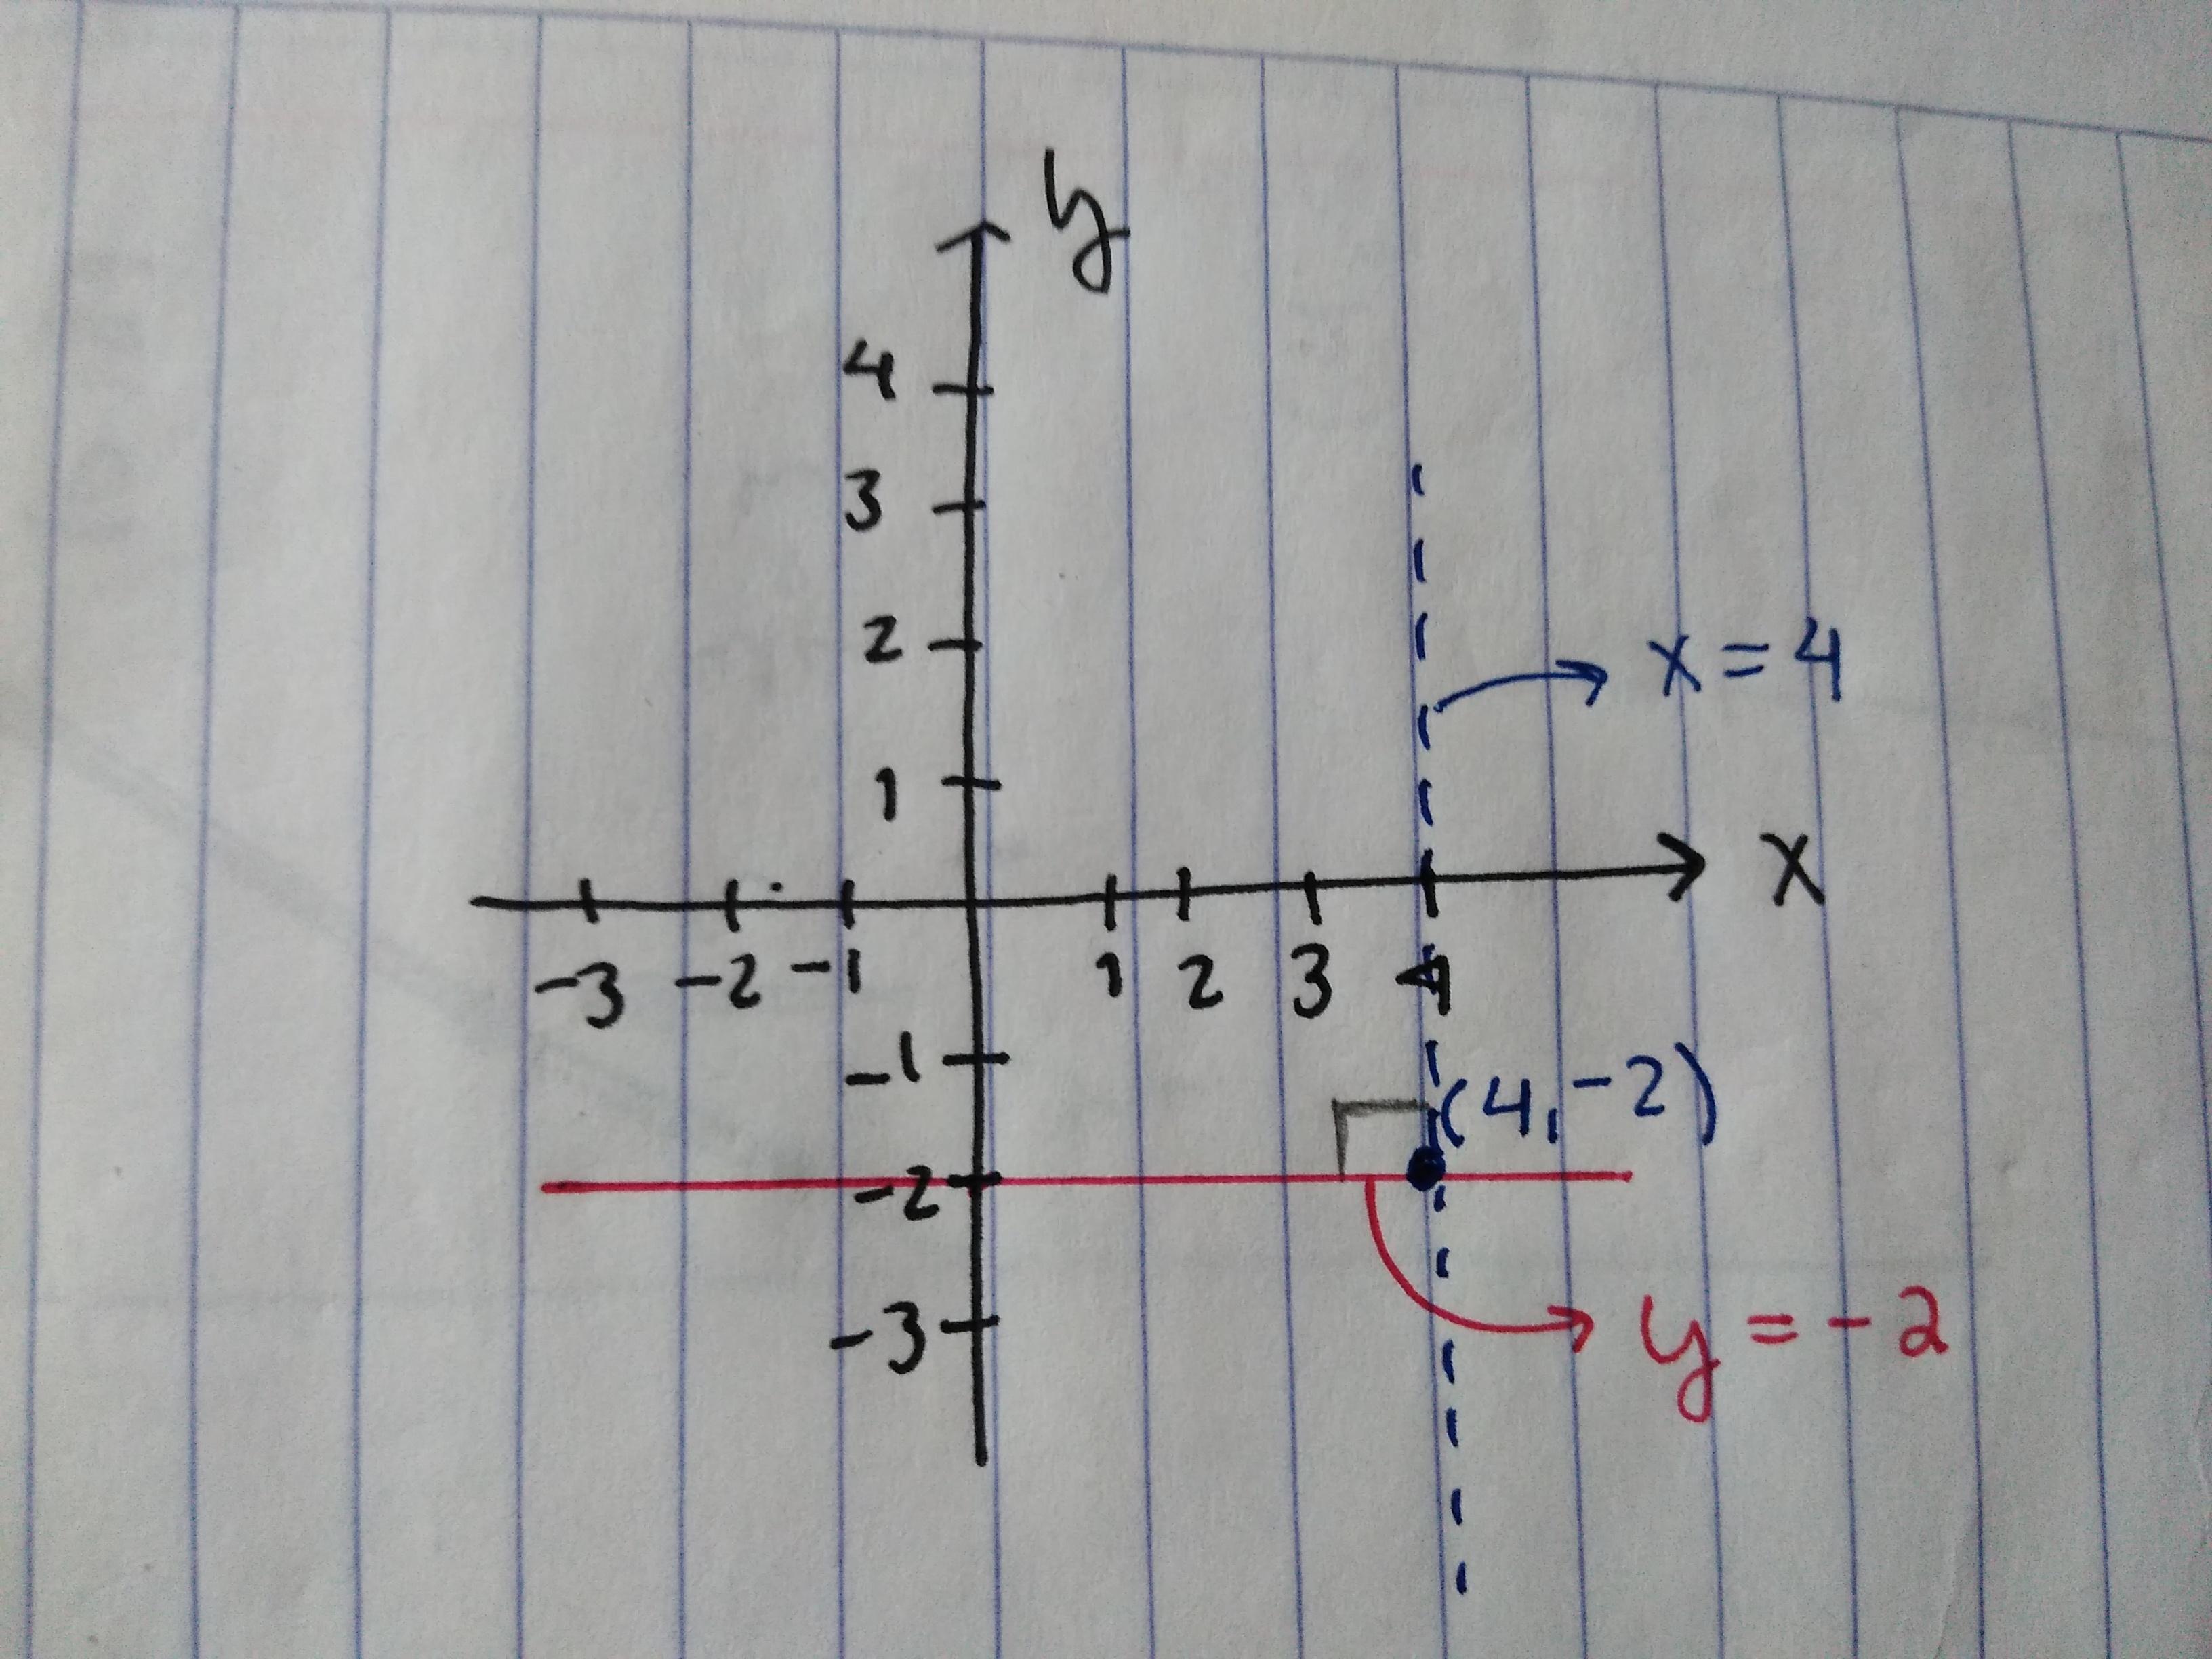 y
4
3
2
x = 4
1
x
-3 -2 -1 1 2 3 4
-1
(4, -2)
-2
-3
y = -2